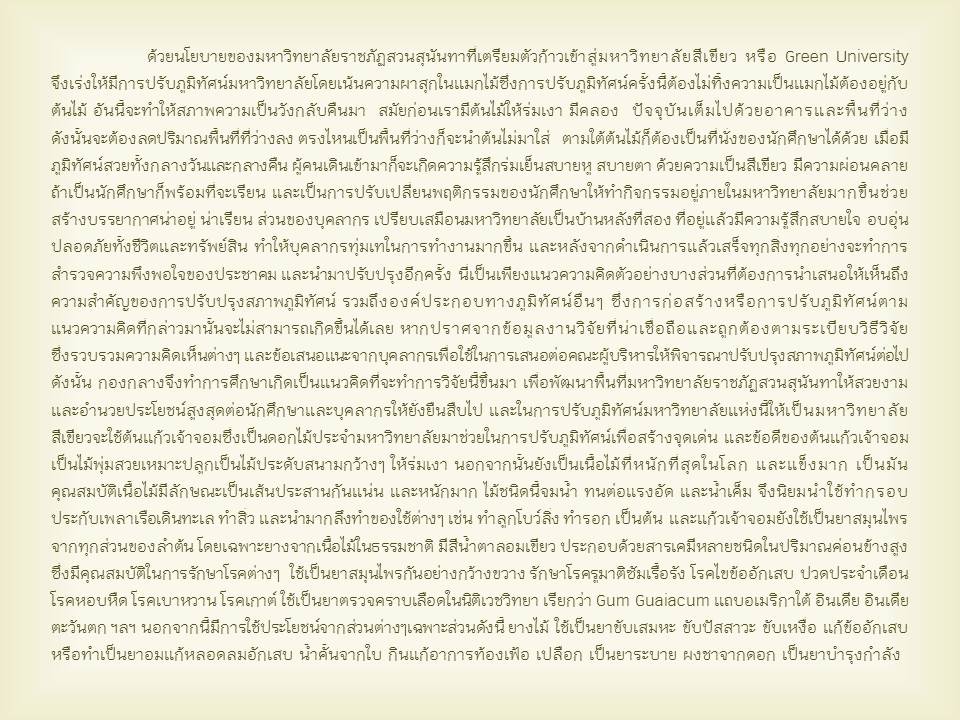 ด้วยนโยบายของมหาวิทยาลัยราชภัฏสวนสุนันทาที่เตรียมตัวก้าวเข้าสู่มหาวิทยาลัยสีเขียว หรือ Green University
จึงเร่งให้มีการปรับภูมิทัศน์มหาวิทยาลัยโดยเน้นความผาสุกในแมกไม้ซึ่งการปรับภูมิทัศน์ครั้งนี้ต้องไม่ทิ้งความเป็นแมกไม้ต้องอยู่กับ
ต้นไม้ อันนี้จะทำให้สภาพความเป็นวังกลับคืนมา สมัยก่อนเรามีต้นไม้ให้ร่มเงา มีคลอง ปัจจุบันเต็มไปด้วยอาคารและพื้นที่ว่าง
ดังนั้นจะต้องลดปริมาณพื้นที่ที่ว่างลง ตรงไหนเป็นพื้นที่ว่างก็จะนำต้นไม่มาใส่ ตามใต้ต้นไม้ก็ต้องเป็นที่นั่งของนักศึกษาได้ด้วย เมื่อมี
ภูมิทัศน์สวยทั้งกลางวันและกลางคืน ผู้คนเดินเข้ามาก็จะเกิดความรู้สึกร่มเย็นสบายหู สบายตา ด้วยความเป็นสีเขียว มีความผ่อนคลาย
ถ้าเป็นนักศึกษาก็พร้อมที่จะเรียน และเป็นการปรับเปลี่ยนพฤติกรรมของนักศึกษาให้ทำกิจกรรมอยู่ภายในมหาวิทยาลัยมากขึ้นช่วย
สร้างบรรยากาศน่าอยู่ น่าเรียน ส่วนของบุคลากร เปรียบเสมือนมหาวิทยาลัยเป็นบ้านหลังที่สอง ที่อยู่แล้วมีความรู้สึกสบายใจ อบอุ่น
ปลอดภัยทั้งชีวิตและทรัพย์สิน ทำให้บุคลากรทุ่มเทในการทำงานมากขึ้น และหลังจากดำเนินการแล้วเสร็จทุกสิ่งทุกอย่างจะทำการ
สำรวจความพึงพอใจของประชาคม และนำมาปรับปรุงอีกครั้ง นี่เป็นเพียงแนวความคิดตัวอย่างบางส่วนที่ต้องการนำเสนอให้เห็นถึง
ความสำคัญของการปรับปรุงสภาพภูมิทัศน์ รวมถึงองค์ประกอบทางภูมิทัศน์อื่นๆ ซึ่งการก่อสร้างหรือการปรับภูมิทัศน์ตาม
แนวความคิดที่กล่าวมานั้นจะไม่สามารถเกิดขึ้นได้เลย หากปราศจากข้อมูลงานวิจัยที่น่าเชื่อถือและถูกต้องตามระเบียบวิธีวิจัย
ซึ่งรวบรวมความคิดเห็นต่างๆ และข้อเสนอแนะจากบุคลากรเพื่อใช้ในการเสนอต่อคณะผู้บริหารให้พิจารณาปรับปรุงสภาพภูมิทัศน์ต่อไป
ดังนั้น กองกลางจึงทำการศึกษาเกิดเป็นแนวคิดที่จะทำการวิจัยนี้ขึ้นมา เพื่อพัฒนาพื้นที่มหาวิทยาลัยราชภัฏสวนสุนันทาให้สวยงาม
และอำนวยประโยชน์สูงสุดต่อนักศึกษาและบุคลากรให้ยั่งยืนสืบไป และในการปรับภูมิทัศน์มหาวิทยาลัยแห่งนี้ให้เป็นมหาวิทยาลัย
สีเขียวจะใช้ต้นแก้วเจ้าจอมซึ่งเป็นดอกไม้ประจำมหาวิทยาลัยมาช่วยในการปรับภูมิทัศน์เพื่อสร้างจุดเด่น และข้อดีของต้นแก้วเจ้าจอม
เป็นไม้พุ่มสวยเหมาะปลูกเป็นไม้ประดับสนามกว้างๆ ให้ร่มเงา นอกจากนั้นยังเป็นเนื้อไม้ที่หนักที่สุดในโลก และแข็งมาก เป็นมัน
คุณสมบัติเนื้อไม้มีลักษณะเป็นเส้นประสานกันแน่น และหนักมาก ไม้ชนิดนี้จมน้ำ ทนต่อแรงอัด และน้ำเค็ม จึงนิยมนำใช้ทำกรอบ
ประกับเพลาเรือเดินทะเล ทำสิ่ว และนำมากลึงทำของใช้ต่างๆ เช่น ทำลูกโบว์ลิ่ง ทำรอก เป็นต้น และแก้วเจ้าจอมยังใช้เป็นยาสมุนไพร
จากทุกส่วนของลำต้น โดยเฉพาะยางจากเนื้อไม้ในธรรมชาติ มีสีน้ำตาลอมเขียว ประกอบด้วยสารเคมีหลายชนิดในปริมาณค่อนข้างสูง
ซึ่งมีคุณสมบัติในการรักษาโรคต่างๆ ใช้เป็นยาสมุนไพรกันอย่างกว้างขวาง รักษาโรครูมาติซัมเรื้อรัง โรคไขข้ออักเสบ ปวดประจำเดือน
โรคหอบหืด โรคเบาหวาน โรคเกาต์ ใช้เป็นยาตรวจคราบเลือดในนิติเวชวิทยา เรียกว่า Gum Guaiacum แถบอเมริกาใต้ อินเดีย อินเดีย
ตะวันตก ฯลฯ นอกจากนี้มีการใช้ประโยชน์จากส่วนต่างๆเฉพาะส่วนดังนี้ ยางไม้ ใช้เป็นยาขับเสมหะ ขับปัสสาวะ ขับเหงื่อ แก้ข้ออักเสบ
หรือทำเป็นยาอมแก้หลอดลมอักเสบ น้ำคั้นจากใบ กินแก้อาการท้องเฟ้อ เปลือก เป็นยาระบาย ผงชาจากดอก เป็นยาบำรุงกำลัง